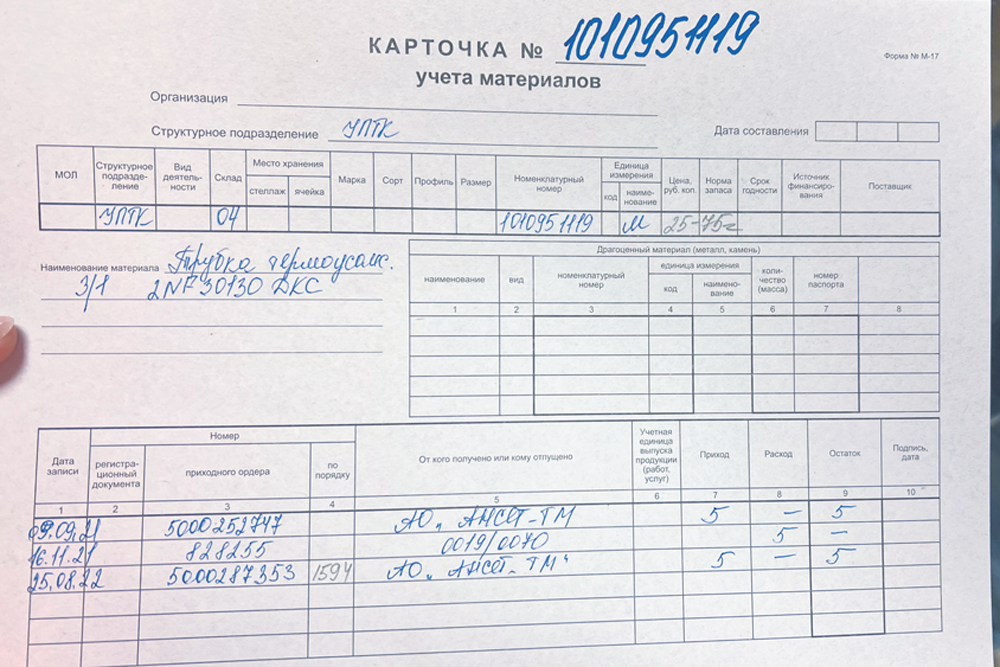 КАРТОЧКА № 1010951119
Форма № М-17
учета материалов
Организация
Структурное подразделение УПТК
Дата составления
МОЛ
Структурное подразде-ление
Вид деятель-ности
Склад
Место хранения
стеллаж
ячейка
Марка
Сорт
Профиль
Размер
Номенклатурный номер
Единица измерения
код
наиме-нование
Цена, руб. коп.
Норма запаса
Срок годности
Источник финансиро-вания
Поставщик
УПТК 04 1010951119 м 25-75
Наименование материала Трубка термоусаж.
3/1 2NF30130 ДКС
Драгоценный материал (металл, камень)
наименование
вид
номенклатурный номер
единица измерения
код
наимено-вание
коли-чество (масса)
номер паспорта
1 2 3 4 5 6 7 8
Дата записи
Номер
регистра-ционный документа
приходного ордера
по порядку
От кого получено или кому отпущено
Учетная единица выпуска продукции (работ, услуг)
Приход
Расход
Остаток
Подпись, дата
1 2 3 4 5 6 7 8 9 10
09.09.21 5000252747 АО „ 5 – 5
16.11.21 828255 0019/0070 5 –
25.08.22 5000287353 1594 АО „ 5 – 5